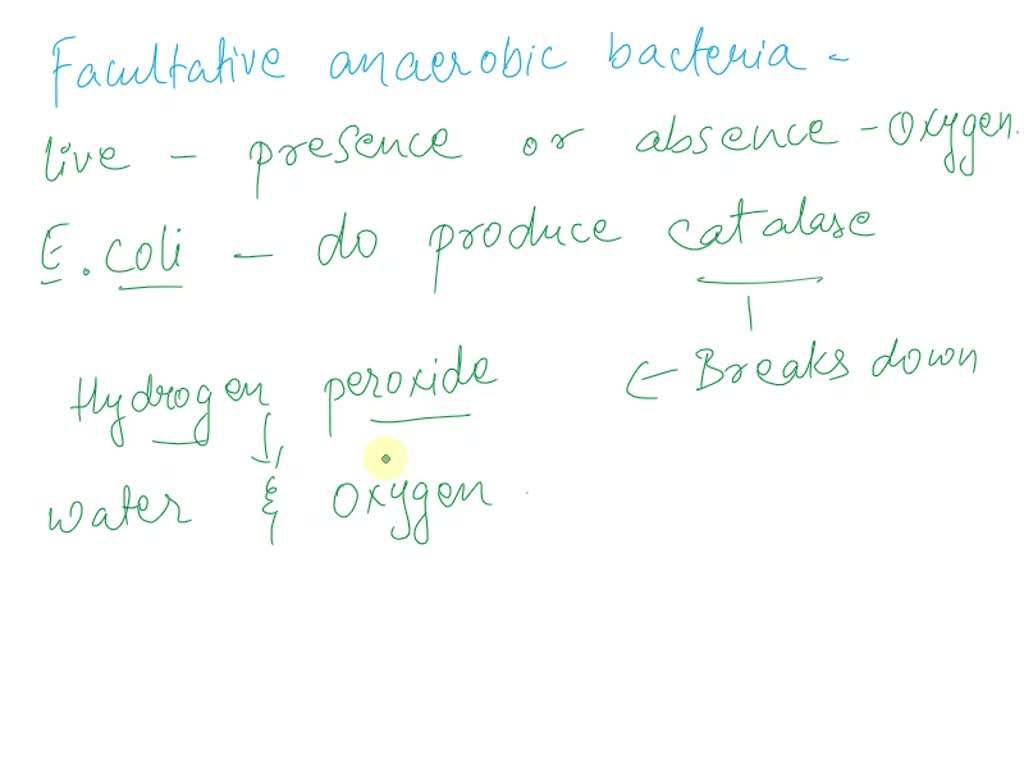 Facultative anaerobic bacteria -
live - presence or absence - Oxygen.
E. coli - do produce catalase
Hydrogen peroxide ← Breaks down
↓
water & oxygen